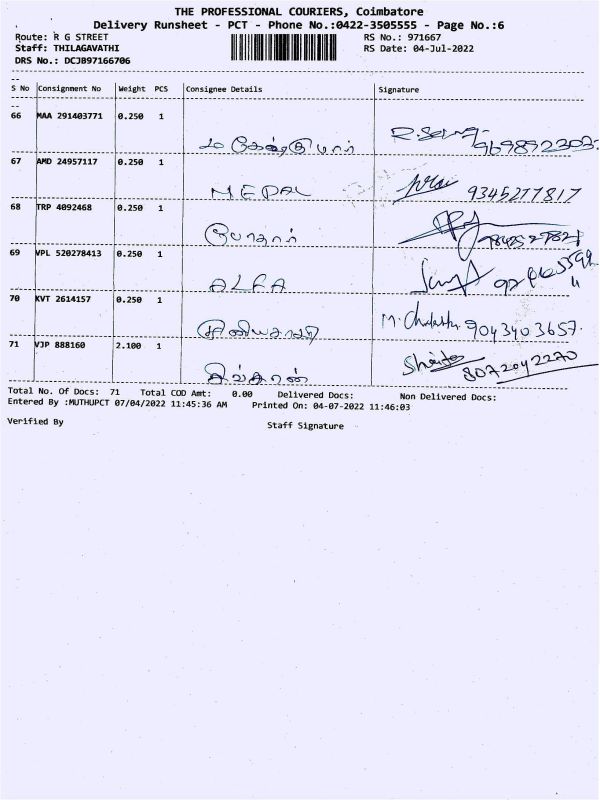 THE PROFESSIONAL COURIERS, Coimbatore
Delivery Runsheet - PCT - Phone No.:0422-3505555 - Page No.:6
Route: R G STREET RS No.: 971667
Staff: THILAGAVATHI RS Date: 04-Jul-2022
DRS No.: DCJ897166706
S No Consignment No Weight PCS Consignee Details Signature
66 MAA 291403771 0.250 1
9698922303
67 AMD 24957117 0.250 1
NEPAL 9345277817
68 TRP 4092468 0.250 1
போதார்
69 VPL 520278413 0.250 1
ALFA
70 KVT 2614157 0.250 1
9043403657
71 VJP 888160 2.100 1
8072042270
Total No. Of Docs: 71 Total COD Amt: 0.00 Delivered Docs: Non Delivered Docs:
Entered By :MUTHUPCT 07/04/2022 11:45:36 AM Printed On: 04-07-2022 11:46:03
Verified By Staff Signature